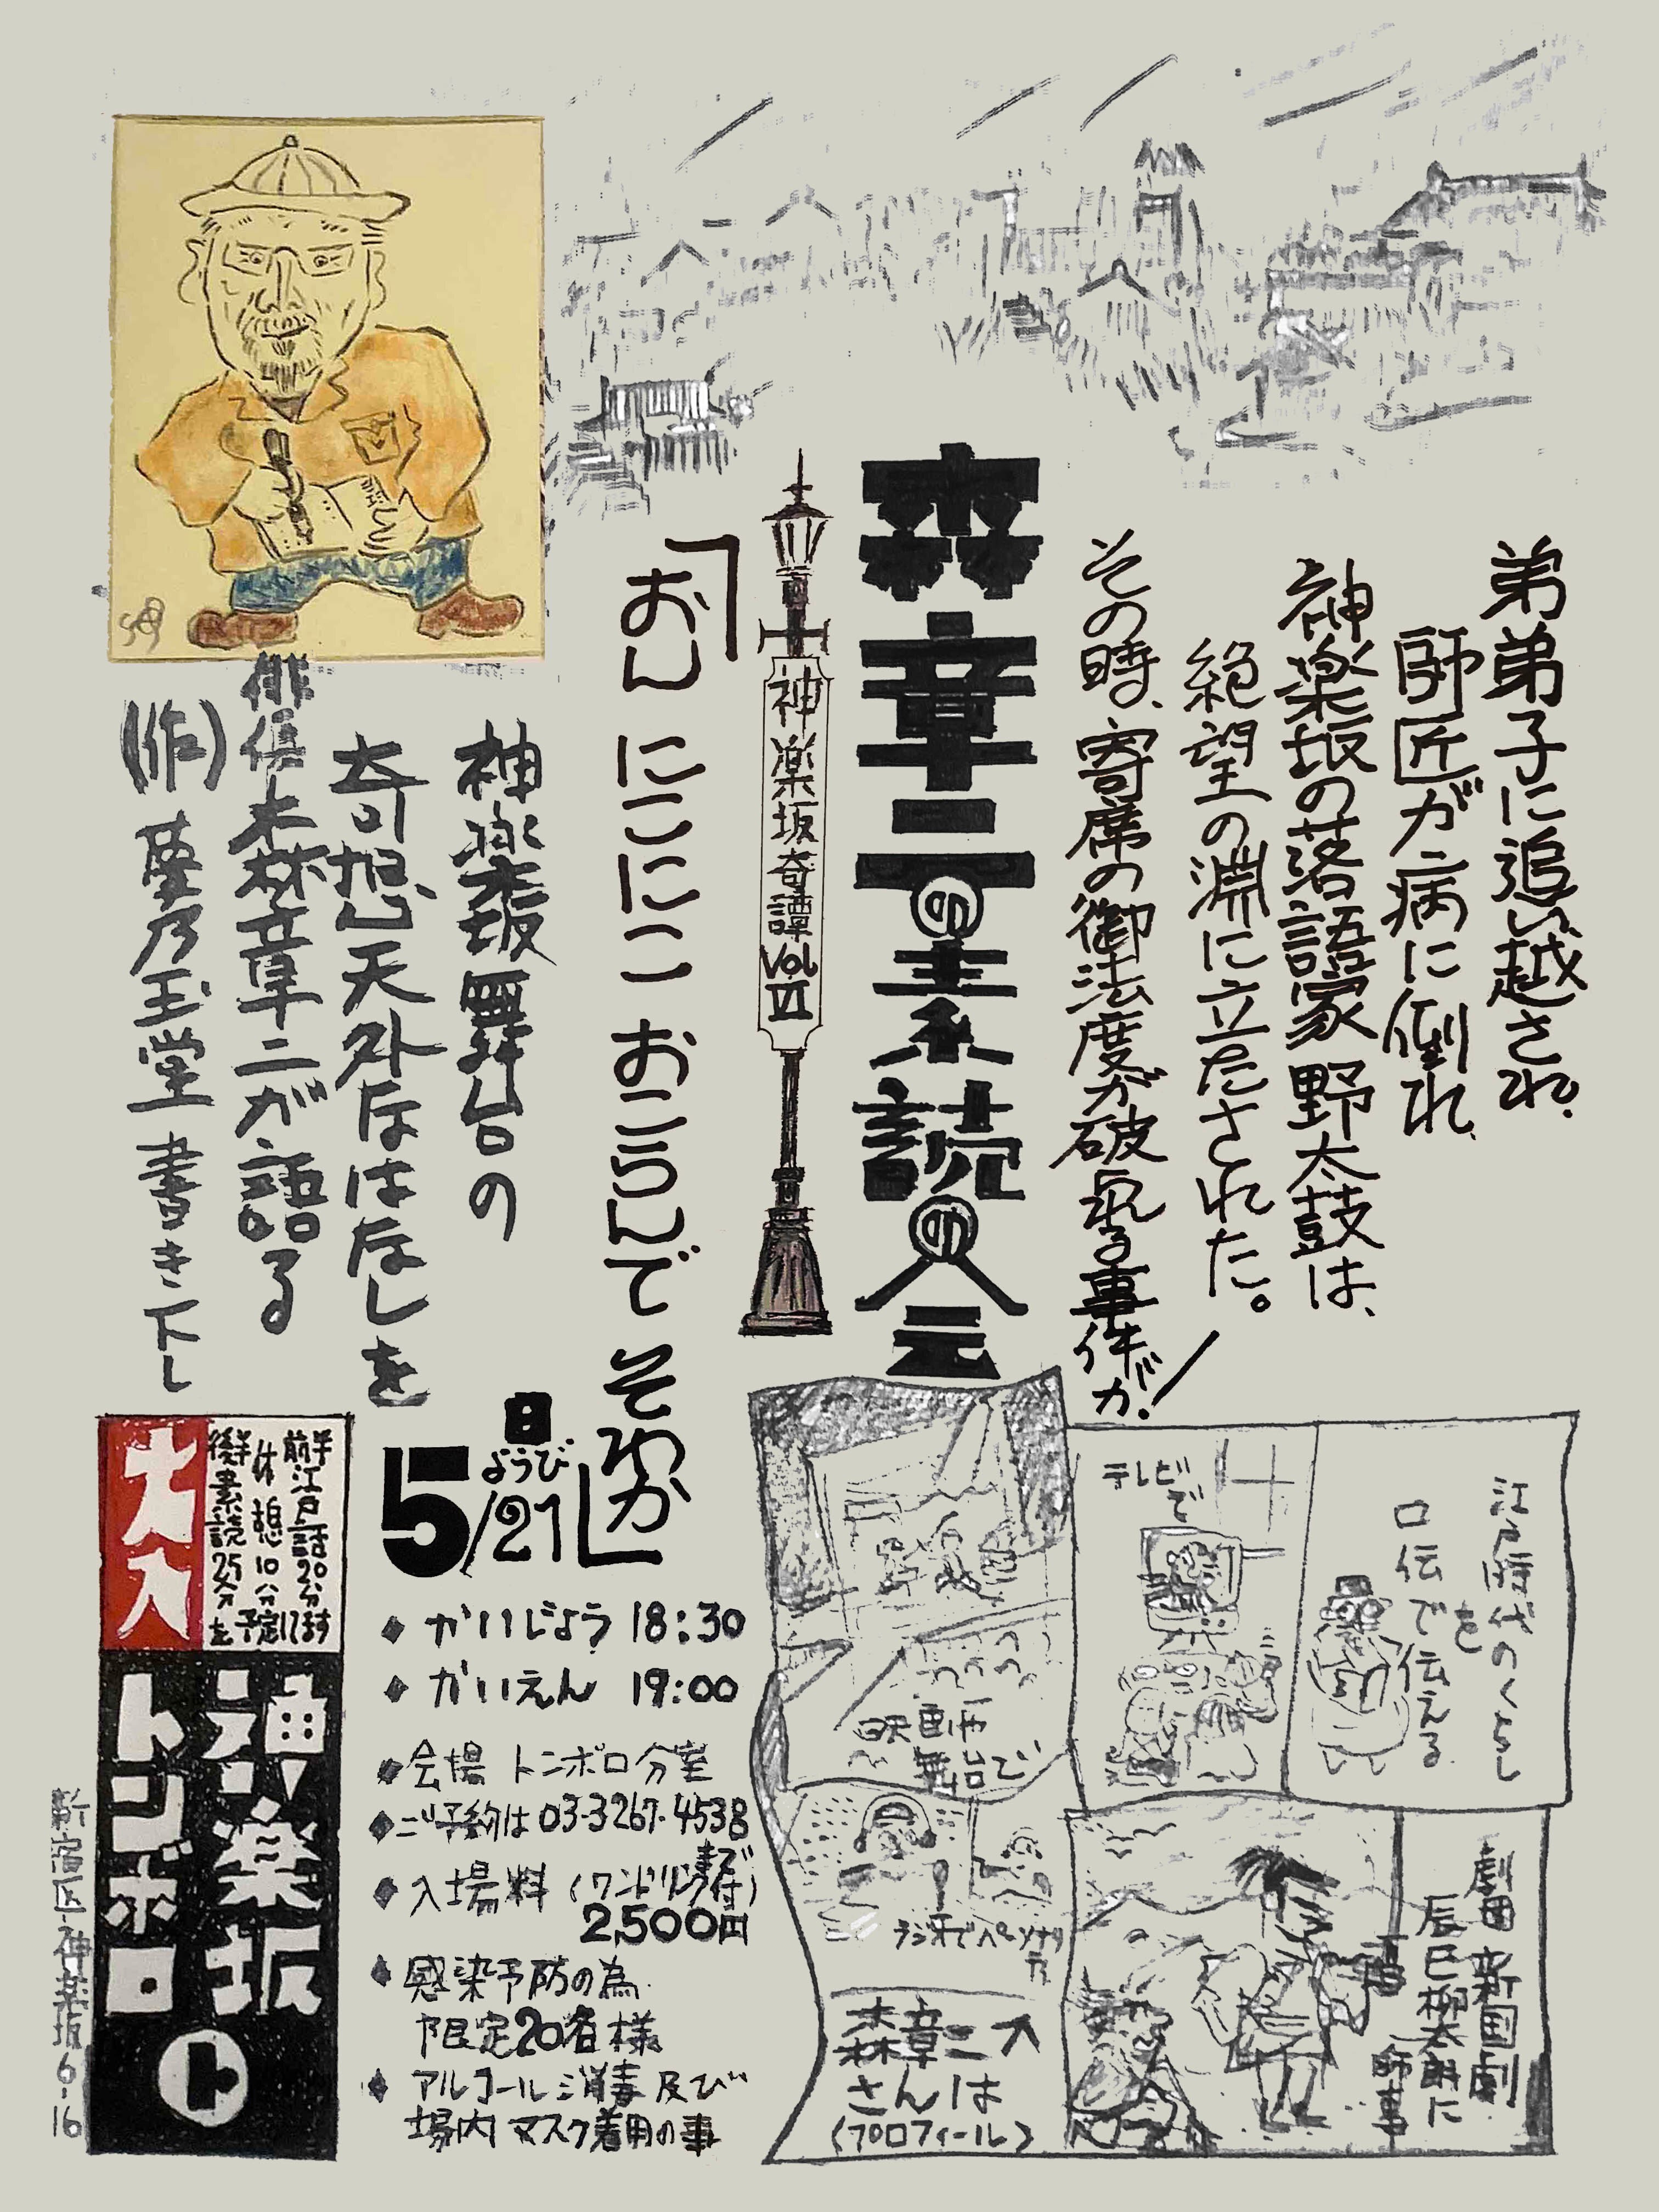 弟弟子に追い越され、
師匠が病に倒れ、
神楽坂の落語家 野太鼓は、
絶望の淵に立たされた。
その時、寄席の御法度が破られる事件が!
森章二の素読の会
神楽坂奇譚 Vol Ⅵ
「おん にこにこ おこらんで そわか」
神楽坂舞台の
奇想天外なはなしを
俳優 森章二が語る
(作) 夢乃玉堂 書き下し
日ようび
5/21
◆ かいじょう 18:30
◆ かいえん 19:00
◆ 会場 トンボロ分室
◆ ご予約は 03-3267-4538 まで
◆ 入場料 (ワンドリンク付)
2,500円
◆ 感染予防の為
限定20名様
◆ アルコール消毒 及び
場内 マスク着用の事
大入
前半江戸話20分
休憩10分
後半素読25分を
予定してます
神楽坂
トンボロ
ト
新宿区神楽坂6-16
江戸時代のくらし
を
口伝で伝える
テレビで
映画や
舞台で
ラジオでパーソナリティ
劇団 新国劇
辰巳柳太郎に
師事
森章二
さんは
(プロフィール)